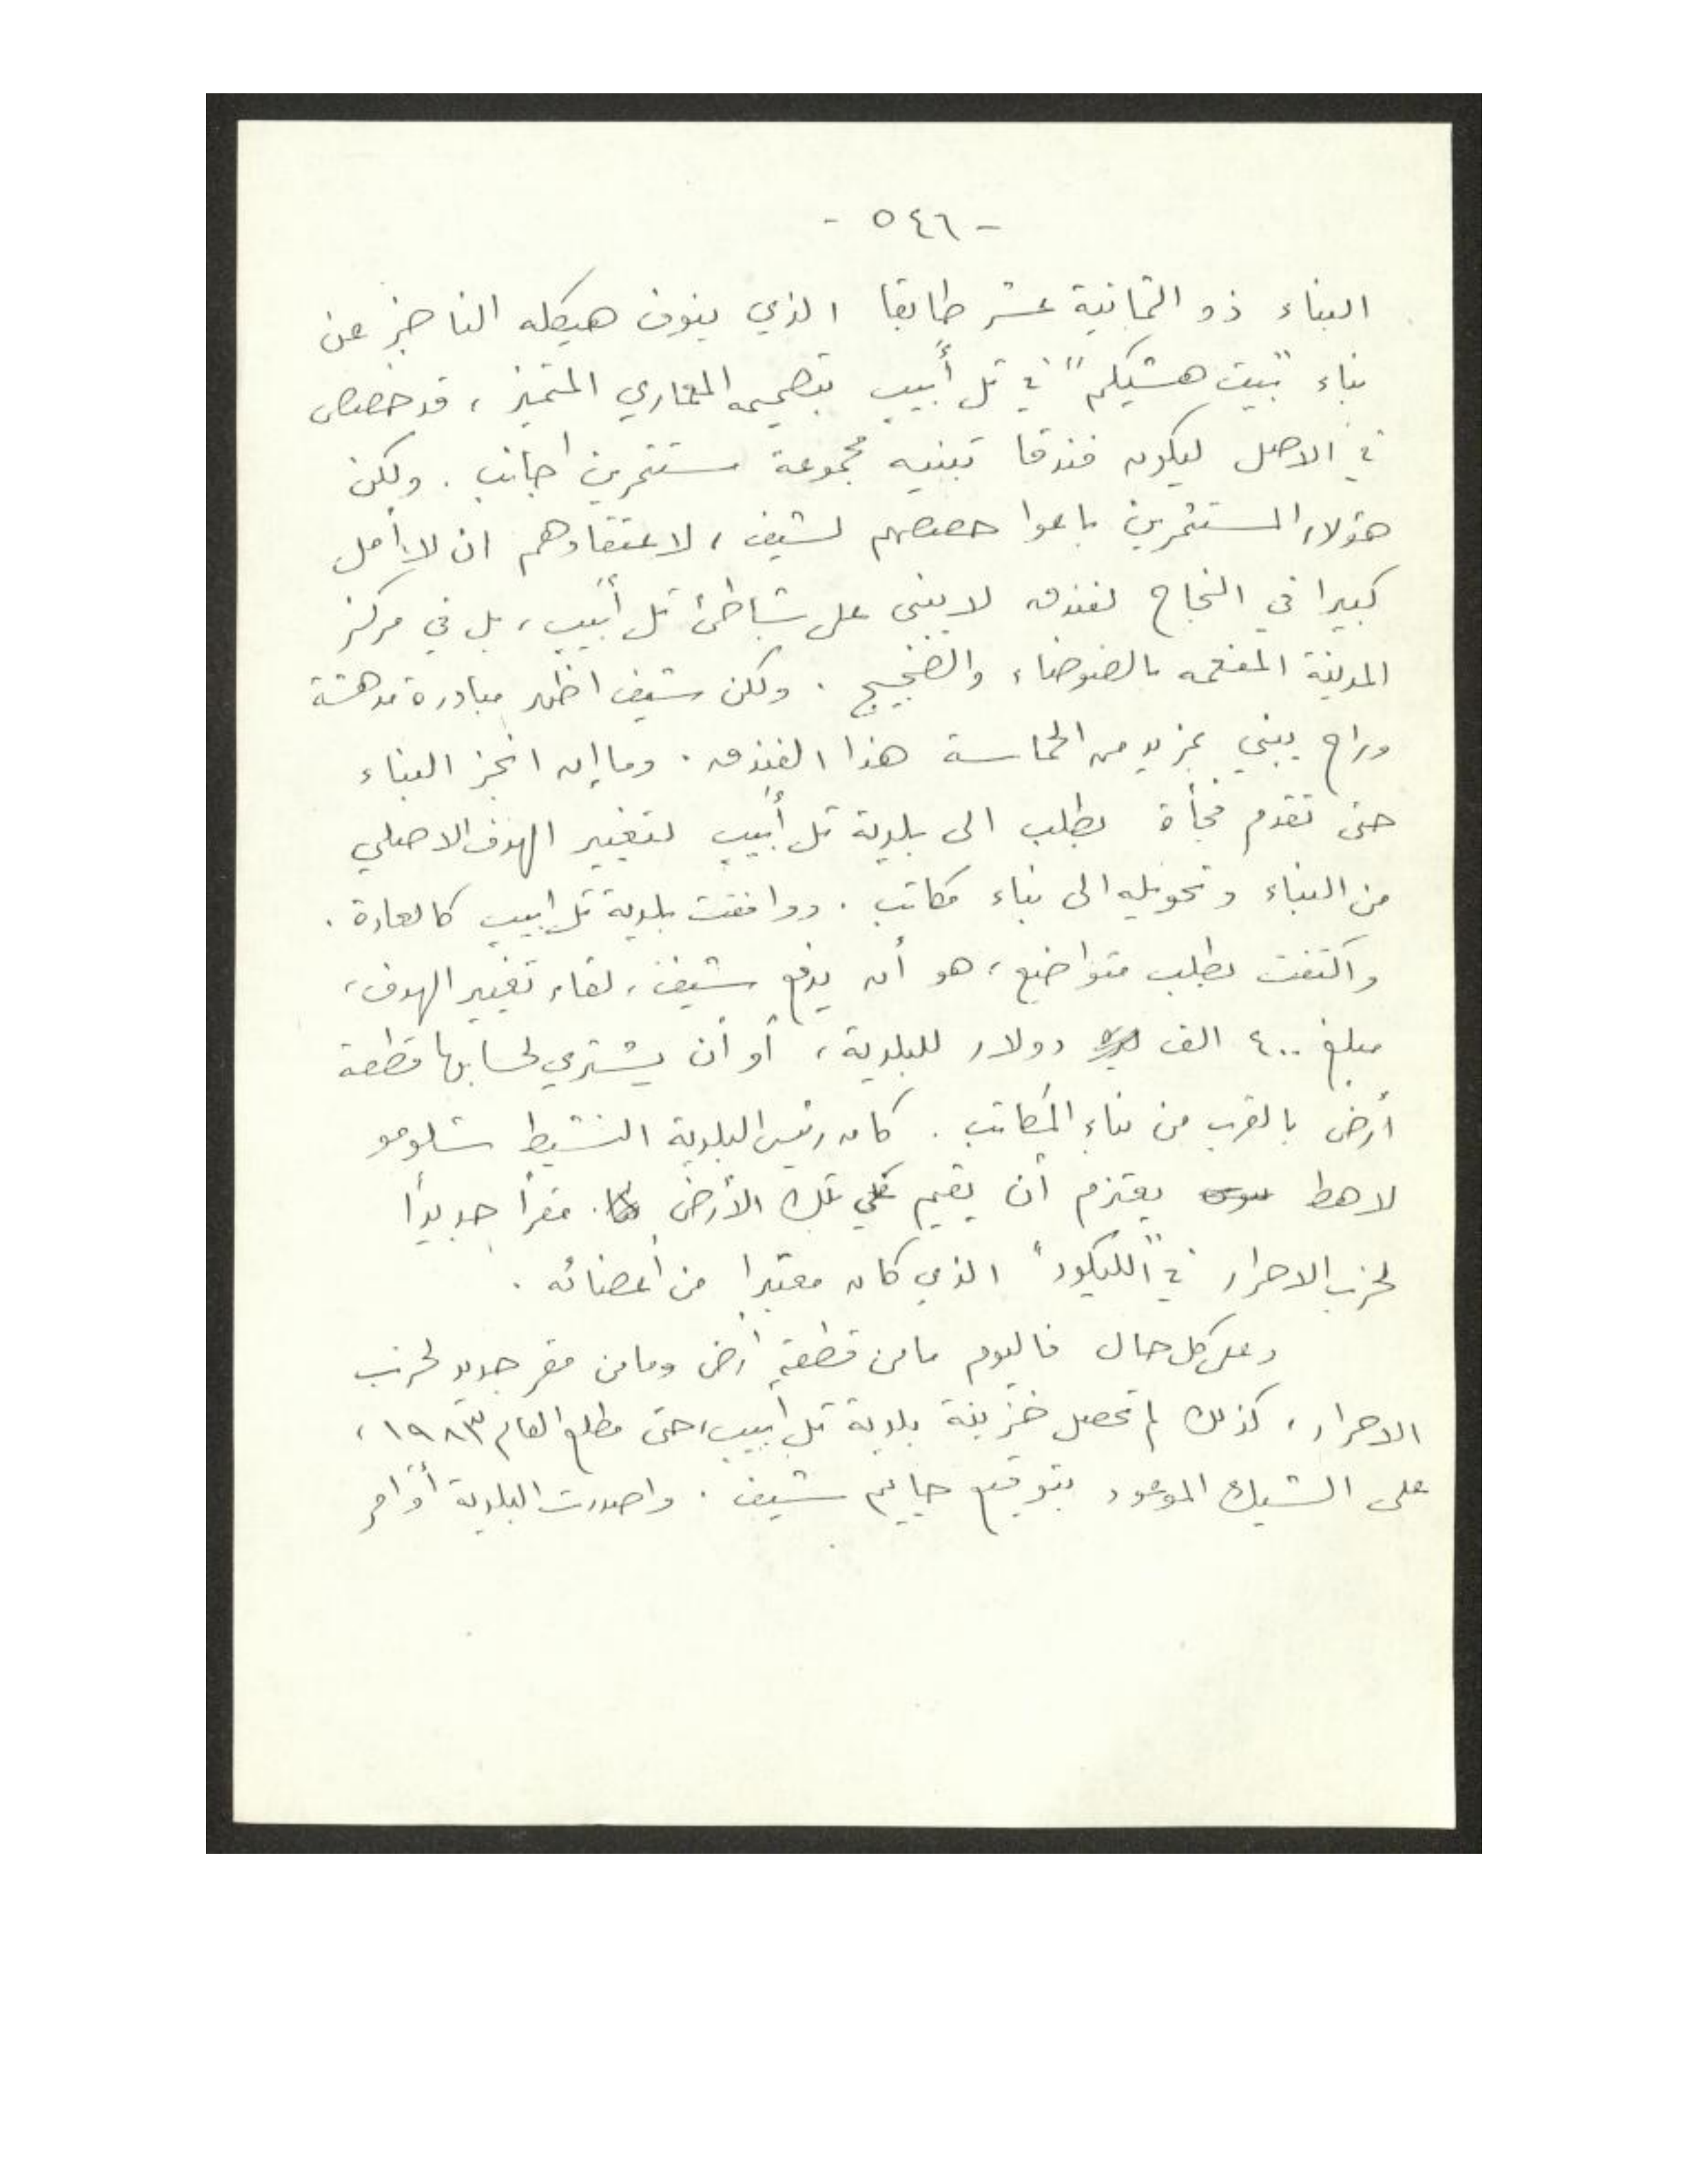 - ٥٤٦ -
البناء ذو الثمانية عشر طابقا الذي ينوف هيكله الناجز عن
بناء "بيت هشيكم" في تل أبيب بتصميمه المعماري المتميز ، قد خصص
في الاصل ليكون فندقا تبنيه مجموعة مستثمرين اجانب . ولكن
هؤلاء المستثمرين باعوا حصصهم لشيف ، لاعتقادهم ان لا أمل
كبيرا في النجاح لفندق لا يبنى على شاطئ تل أبيب ، بل في مركز
المدينة المفعمه بالضوضاء والضجيج . ولكن شيف اظهر مبادرة مدهشة
وراح يبني بمزيد من الحماسة هذا الفندق . وما إن انجز البناء
حتى تقدم فجأة بطلب الى بلدية تل أبيب لتغيير الهدف الاصلي
من البناء وتحويله الى بناء مكاتب . ووافقت بلدية تل ابيب كالعادة .
واكتفت بطلب متواضع ، هو أن يدفع شيف ، لقاء تغيير الهدف ،
مبلغ ٤٠٠ الف دولار للبلدية ، أو أن يشتري لحسابها قطعة
أرض بالقرب من بناء المكاتب . كان رئيس البلدية النشيط شلومو
لاهط يعتزم أن يقيم على تلك الأرض مقرا جديدا
لحزب الاحرار في "الليكود" الذي كان معتبرا من أعضائه .
وعلى كل حال فاليوم ما من قطعة أرض وما من مقر جديد لحزب
الاحرار ، كذلك لم تحصل خزينة بلدية تل أبيب ، حتى مطلع العام ١٩٨٣ ،
على الشيك الموعود بتوقيع حاييم شيف . واصدرت البلدية أوامر